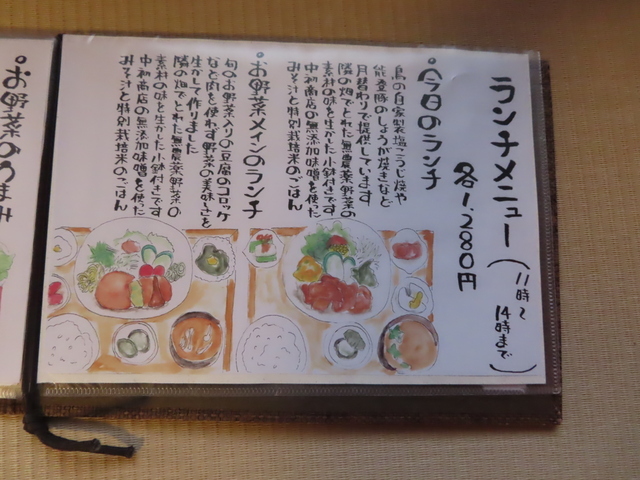 ランチメニュー(11時〜14時まで)
各1,280円
・今日のランチ
鳥の自家製塩こうじ焼や
能登豚のしょうが焼きなど
月替わりで提供しています
隣の畑でとれた無農薬野菜の
素材の味を生かした小鉢付きです
中初商店の無添加味噌を使った
みそ汁と特別栽培米のごはん
・お野菜メインのランチ
旬のお野菜入りの豆腐のコロッケ
など肉を使わず野菜の美味しさを
生かして作りました
隣の畑でとれた無農薬野菜の
素材の味を生かした小鉢付きです
中初商店の無添加味噌を使った
みそ汁と特別栽培米のごはん
・お野菜のうまみ